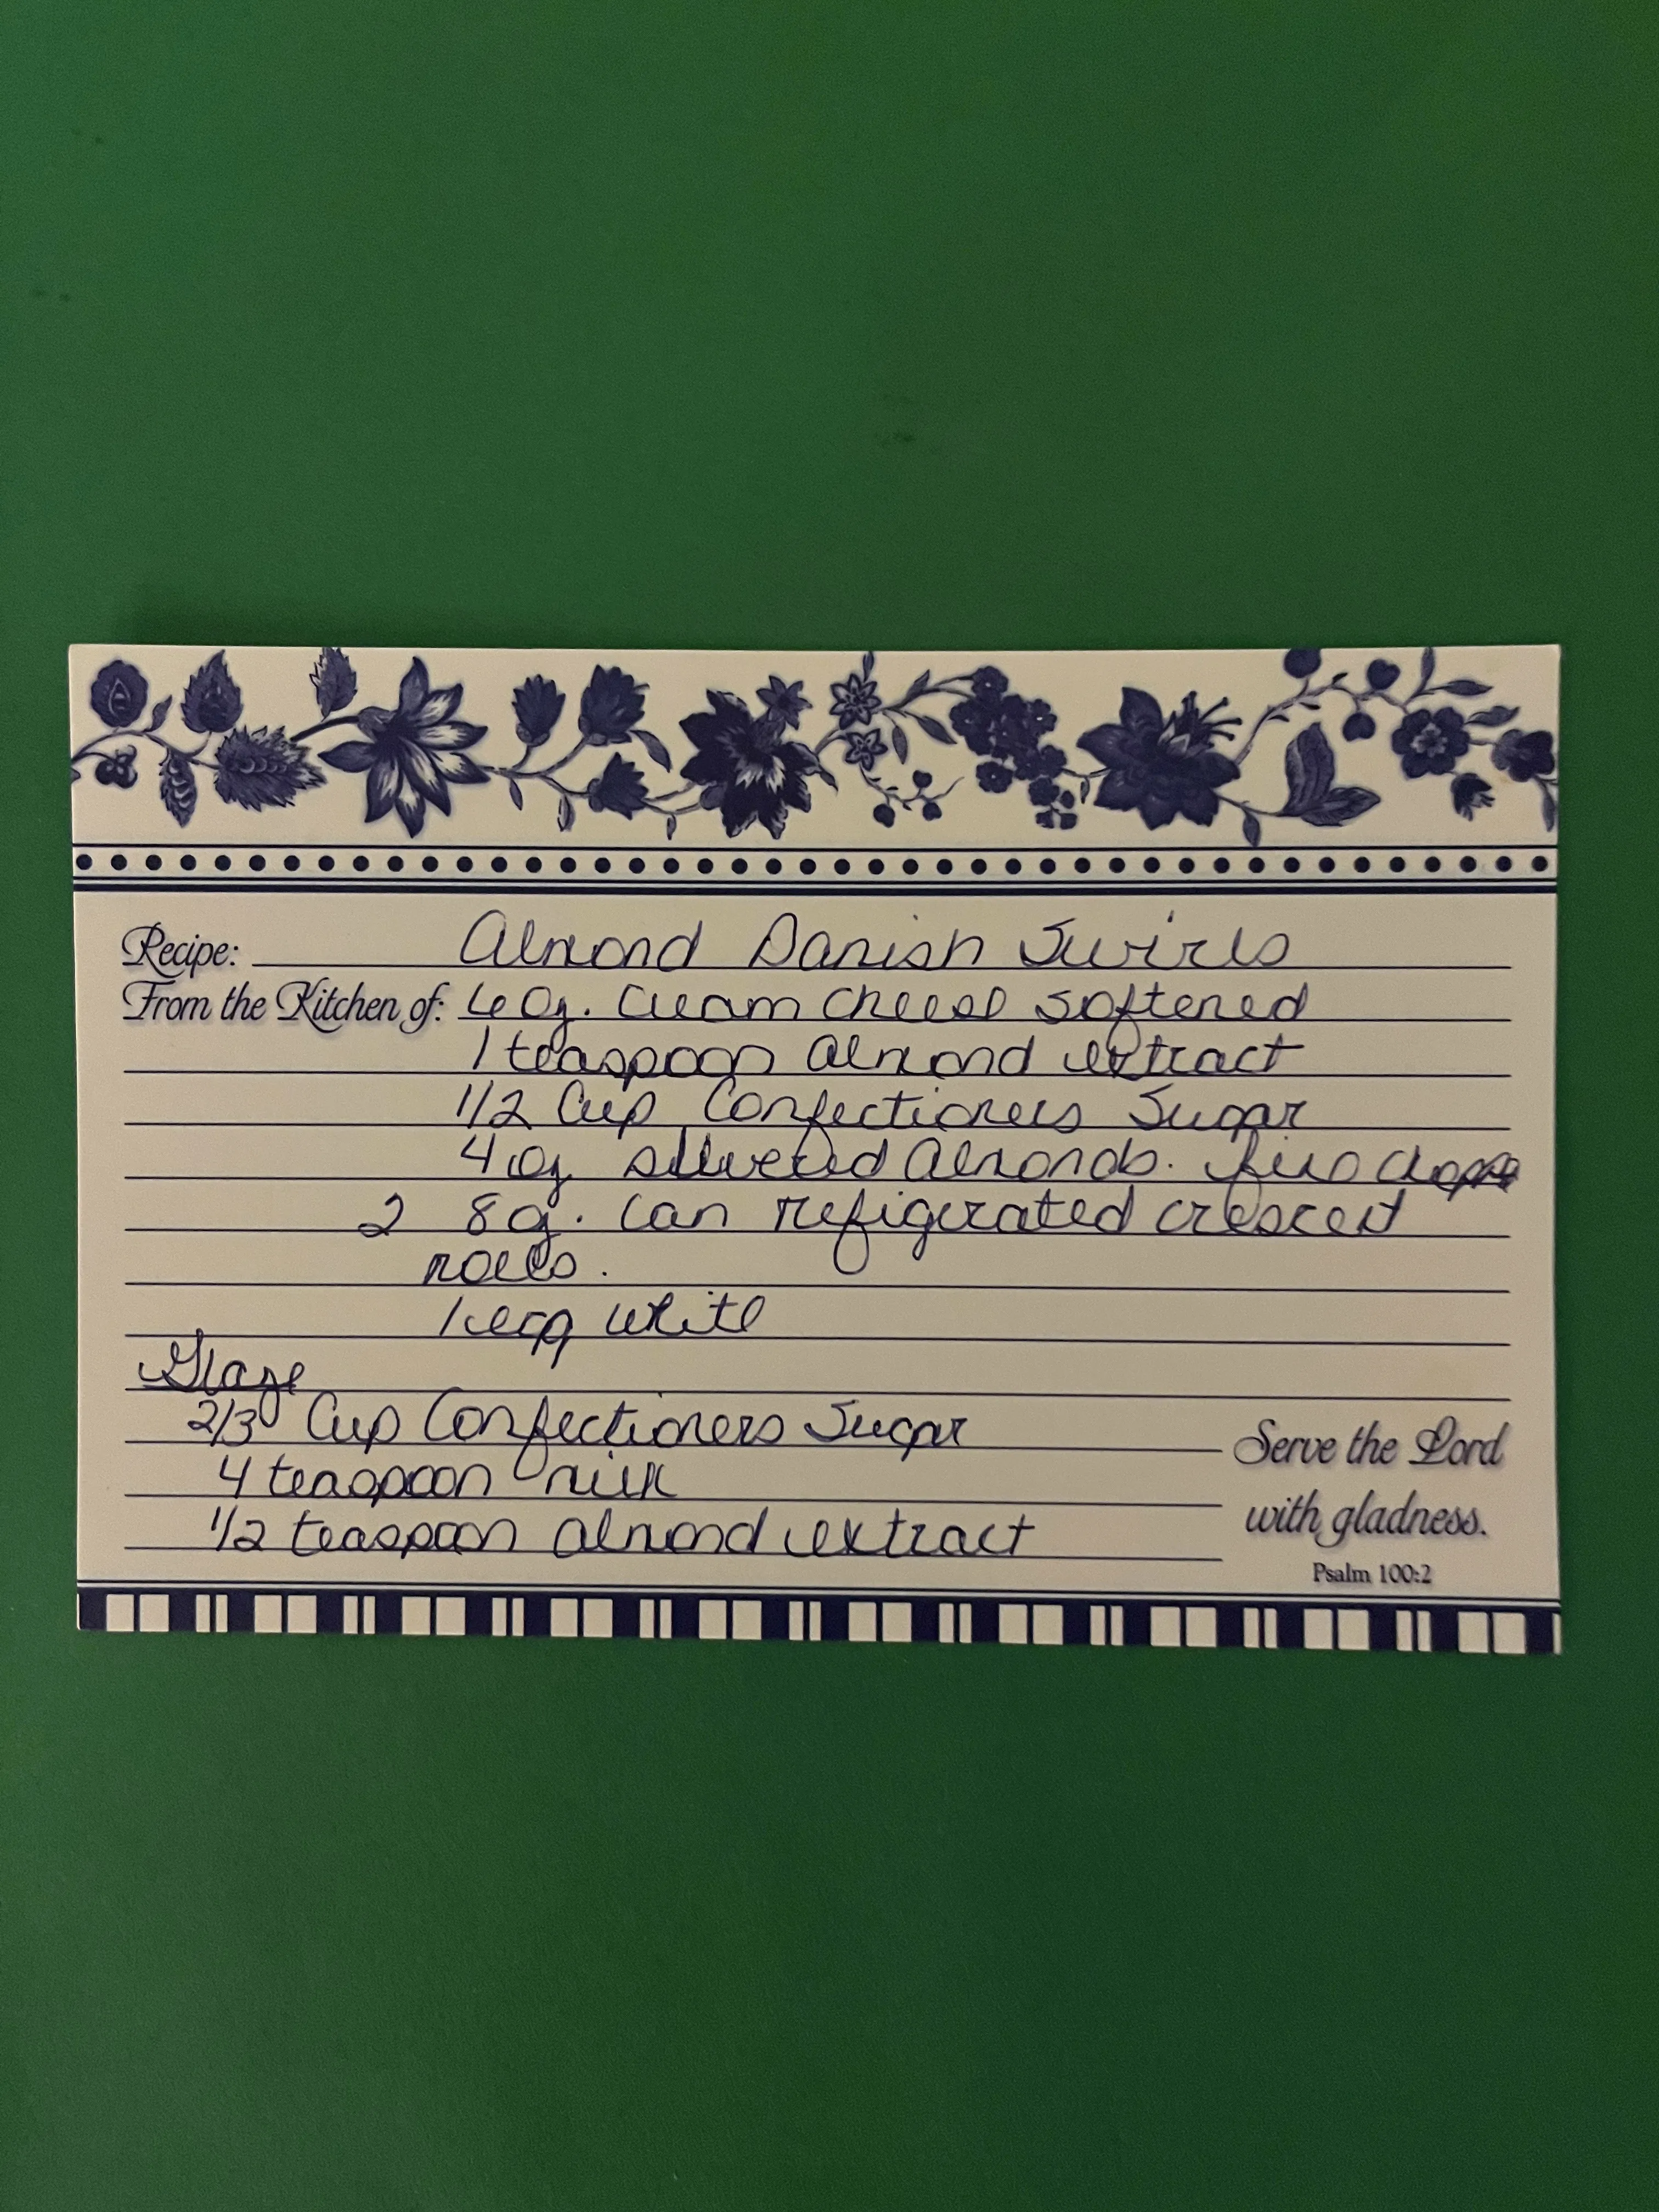 Recipe: Almond Danish Swirls
From the Kitchen of: 6 oz. Cream Cheese softened
1 teaspoon almond extract
1/2 Cup Confectioners Sugar
4 oz slivered Almonds.
2 8 oz. Can refigerated crescent
rolls.
1 egg white
Glaze
2/3 Cup Confectioners Sugar
4 teaspoon milk
1/2 teaspoon almond extract
Serve the Lord
with gladness.
Psalm 100:2